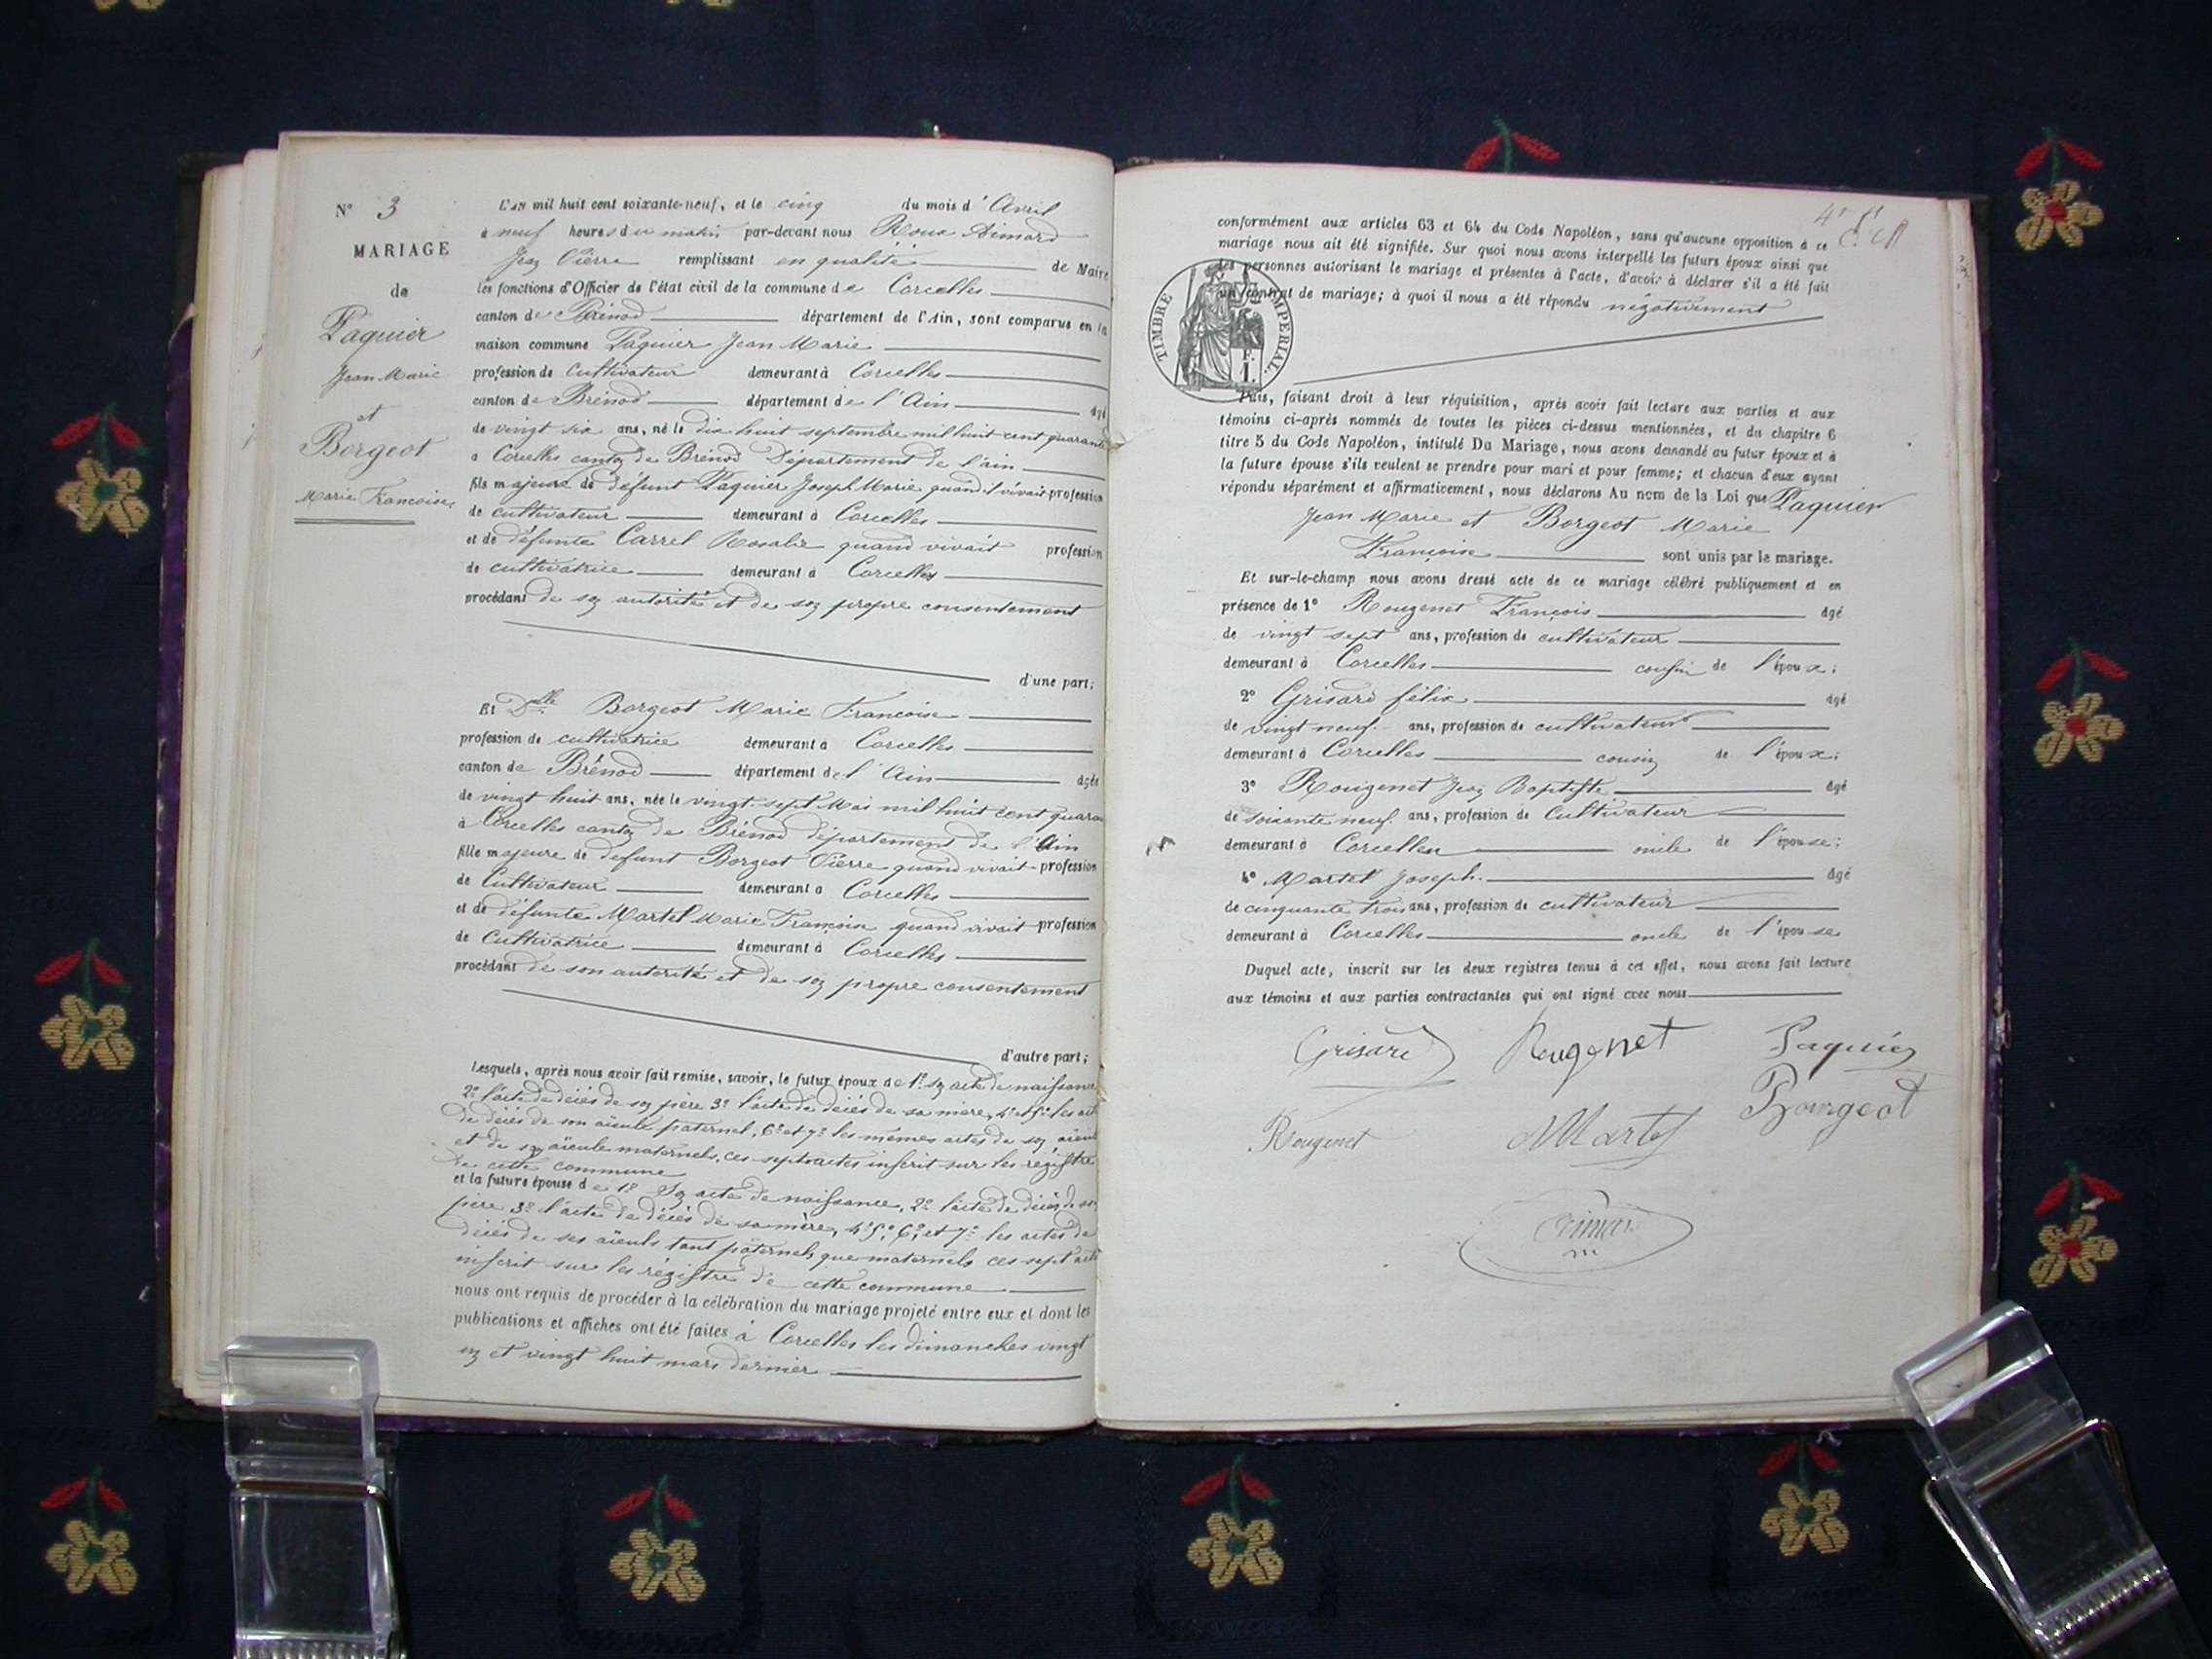 N° 3
MARIAGE
de
Paquier
Jean Marie
et
Borgeot
Marie Francoise
L'AN mil huit cent soixante-neuf, et le cinq du mois d'Avril
à neuf heures du matin par-devant nous Roux Aimard
Jean Pierre remplissant en qualité de Maire
les fonctions d'Officier de l'état civil de la commune de Corcelles
canton de Brénod département de l'Ain, sont comparus en la
maison commune Paquier Jean Marie
profession de cultivateur demeurant à Corcelles
canton de Brénod département de l'Ain âgé
de vingt six ans, né le dix huit septembre mil huit cent quarante
a Corcelles canton de Brénod Département de l'ain
fils majeure de défunt Paquier Joseph Marie quand il vivait profession
de cultivateur demeurant à Corcelles
et de défunte Carrel Rosalie quand vivait profession
de cultivatrice demeurant à Corcelles
procédant de son autorité et de son propre consentement
d'une part;
Et Delle Borgeot Marie Francoise
profession de cultivatrice demeurant à Corcelles
canton de Brénod département de l'Ain âgée
de vingt huit ans, née le vingt-sept Mai mil huit cent quaran
à Corcelles canton de Brénod département de l'Ain
fille majeure de defunt Borgeot Pierre quand vivait profession
de Cultivateur demeurant à Corcelles
et de défunte Martel Marie Françoise quand vivait profession
de Cultivatrice demeurant à Corcelles
procédant de son autorité et de son propre consentement
d'autre part;
Lesquels, après nous avoir fait remise, savoir, le futur époux de 1° son acte de naissance
2° l'acte de décès de son père 3° l'acte de décès de sa mère, 4° et 5° les act
de décès de son aïeule paternel, 6° et 7° les mêmes actes de son aïeul
et de son aïeule maternels, ces sept actes inscrit sur les régistre
de cette commune
et la future épouse de 1° Son acte de naissance, 2° l'acte de décès de son
père 3° l'acte de décès de sa mère, 4° 5°, 6° et 7° les actes de
décès de ses aïeuls tant paternels que maternels ces sept acte
inscrit sur les régistre de cette commune
nous ont requis de procéder à la célébration du mariage projeté entre eux et dont les
publications et affiches ont été faites à Corcelles les dimanches vingt
un et vingt huit mars dernier
conformément aux articles 63 et 64 du Code Napoléon, sans qu'aucune opposition à ce
mariage nous ait été signifiée. Sur quoi nous avons interpellé les futurs époux ainsi que
les personnes autorisant le mariage et présentes à l'acte, d'avoir à déclarer s'il a été fait
un contrat de mariage; à quoi il nous a été répondu négativement
TIMBRE IMPERIAL
Puis, faisant droit à leur réquisition, après avoir fait lecture aux parties et aux
témoins ci-après nommés de toutes les pièces ci-dessus mentionnées, et du chapitre 6
titre 5 du Code Napoléon, intitulé Du Mariage, nous avons demandé au futur époux et à
la future épouse s'ils veulent se prendre pour mari et pour femme; et chacun d'eux ayant
répondu séparément et affirmativement, nous déclarons Au nom de la Loi que Paquier
Jean Marie et Borgeot Marie
Françoise sont unis par le mariage.
Et sur-le-champ nous avons dressé acte de ce mariage célébré publiquement et en
présence de 1° Rougenet François âgé
de vingt sept ans, profession de cultivateur
demeurant à Corcelles cousin de l'époux;
2° Grisard félix âgé
de vingt neuf ans, profession de cultivateur
demeurant à Corcelles cousin de l'époux;
3° Rougenet Jean Baptiste âgé
de soixante neuf ans, profession de Cultivateur
demeurant à Corcelles oncle de l'épouse;
4° Martel Joseph. âgé
de cinquante trois ans, profession de cultivateur
demeurant à Corcelles oncle de l'épouse
Duquel acte, inscrit sur les deux registres tenus à cet effet, nous avons fait lecture
aux témoins et aux parties contractantes qui ont signé avec nous
Grisard Rougenet Paquier
Borgeot
Rougenet Martel
Aimard